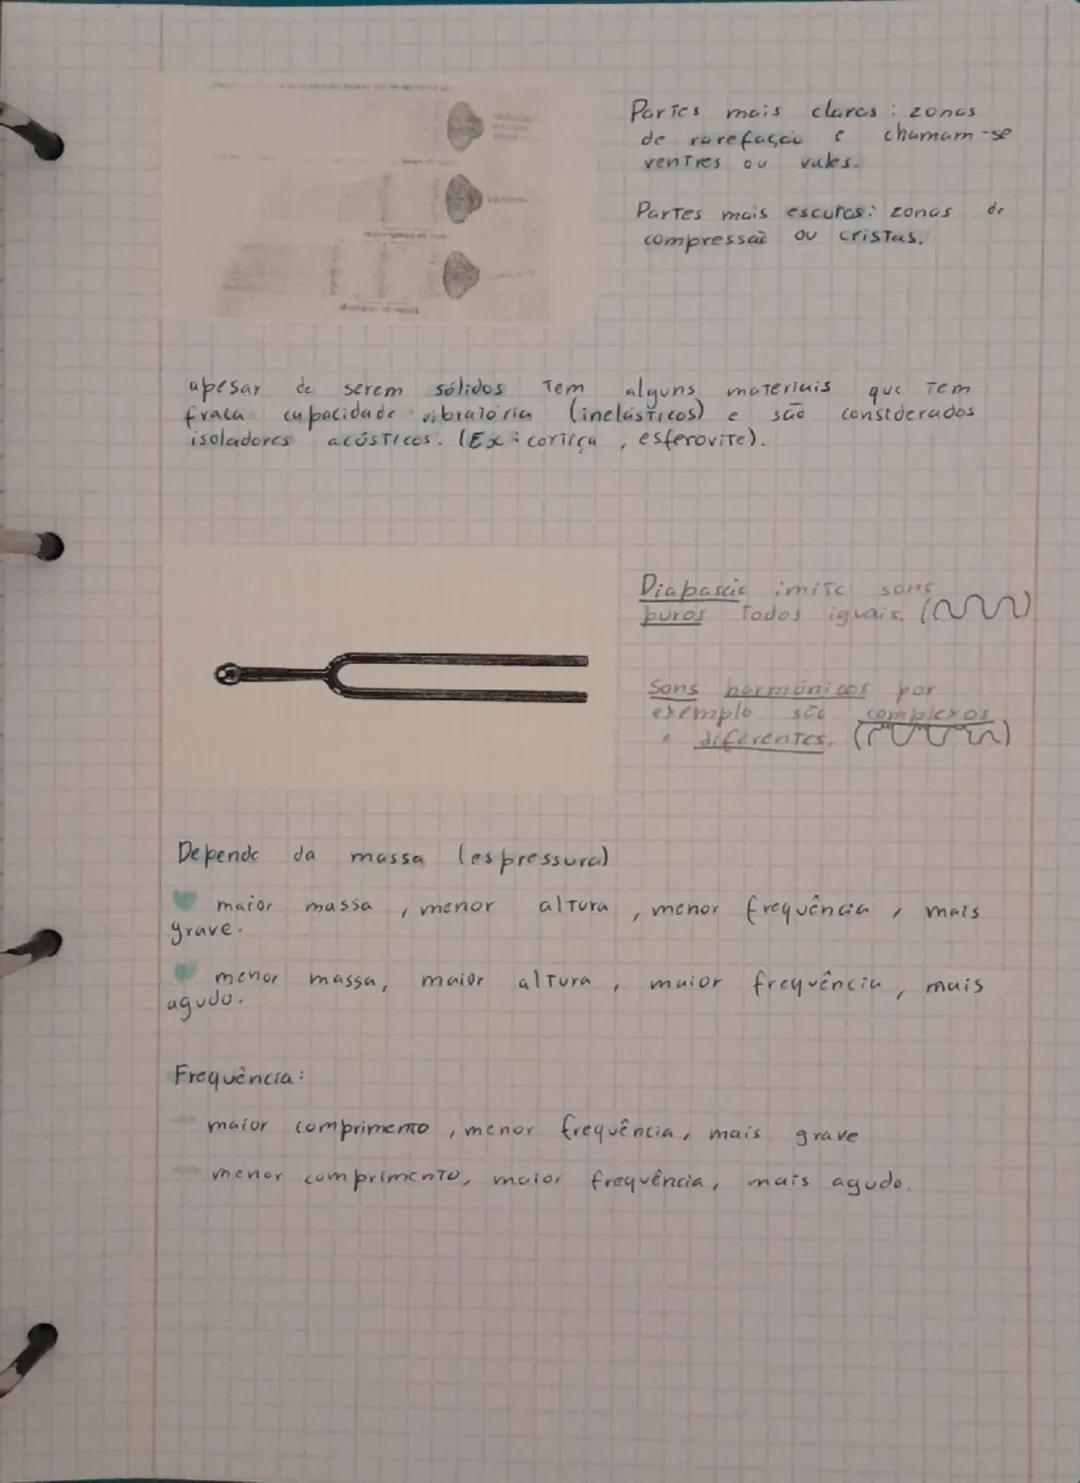 Partes mais claras : zonas
de rarefação e chamam-se
ventres ou vales.
Partes mais escuras: zonas de
compressão ou cristas.
apesar de serem sólidos tem alguns materiais que tem
fraca capacidade vibratória (inelásticos) e são considerados
isoladores acústicos. (Ex: cortiça, esferovite).
Diapasão imite sons
puros todos iguais. (
Sons harmónicos por
exemplo são complexos
e diferentes. (
Depende da massa (espressura)
maior massa, menor altura, menor frequência, mais
grave.
menor massa, maior altura, maior frequência, mais
agudo.
Frequência:
maior comprimento, menor frequência, mais grave
menor comprimento, maior frequência, mais agudo.